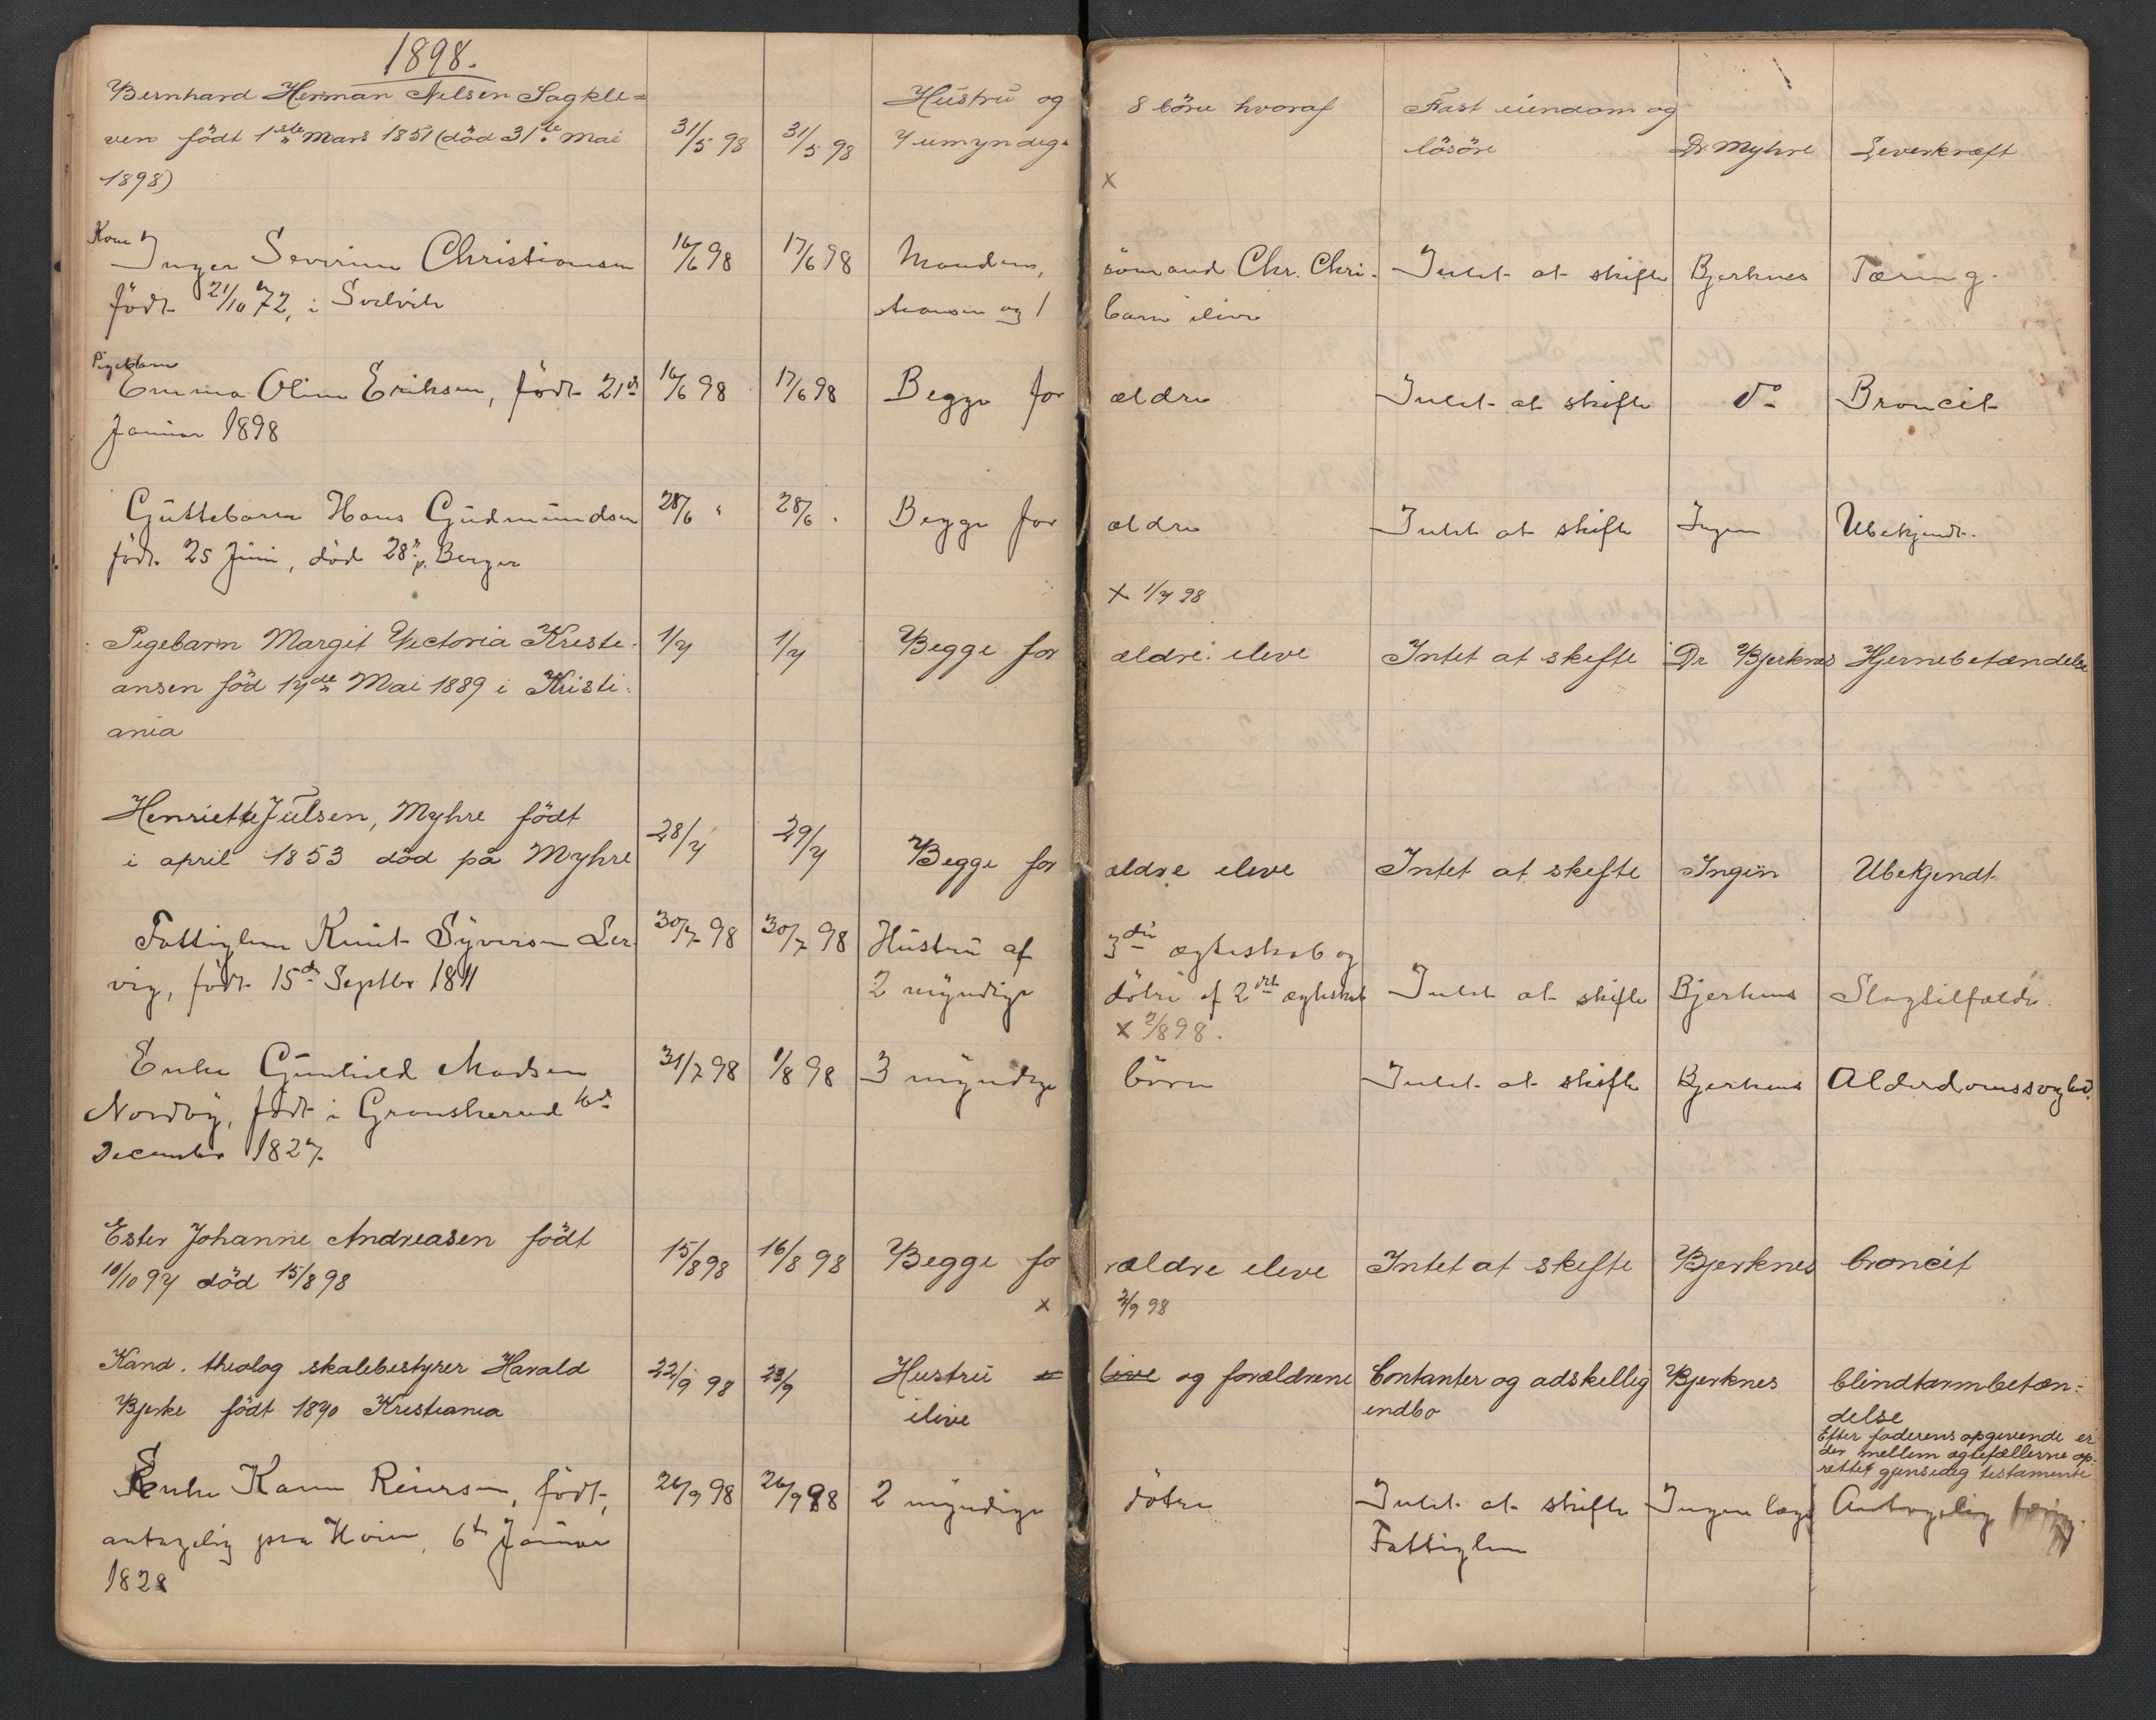 1898.
Bernhard Herman Nilsen Sagkle=
ven født 1ste Mars 1851 (död 31te Mai 31/5 98 31/5 98 Hustru og 7 umyndige 8 börn hvoraf Fast eiendom og lösöre Dr. Myhre Leverkræft
1898)
x
Kone Inger Severine Christiansen 16/6 98 17/6 98 Manden, sömand Chr. Chri- Intet at skifte Bjerknes Tæring.
födt 21/10 72, i Svelvik stiansen og 1 barn ilive
Pigebarn
Emma Oline Eriksen, födt 21de 16/6 98 17/6 98 Begge for ældre Intet at skifte do Broncit
Januar 1898
Guttebarn Hans Gudmundsen 28/6 " 28/6 " Begge for ældre Intet at skifte Ingen Ubekjendt.
födt 25 Juni, död 28de, Berger
x 1/7 98
Pigebarn Margit Victoria Kristi- 1/7 1/7 Begge for ældre ilive Intet at skifte Dr Bjerknes Hjernebetændelse
ansen föd 17de Mai 1889 i Kristi-
ania
Henriette Julsen, Myhre födt
i april 1853 död på Myhre 28/7 29/7 Begge for ældre ilive Intet at skifte Ingen Ubekjendt
Fattiglem Knut Syversen Ler- 30/7 98 30/7 98 Hustru af 3die ægteskab og
vig, födt 15de Septbr 1811 2 myndige döbre af 2det ægteskab Intet at skifte Bjerknes Slagtilfælde.
x 2/8 98.
Enke Gunhild Madsen 31/7 98 1/8 98 3 myndige börn Intet at skifte Bjerknes Alderdomssvaghed.
Nordby, födt i Gransherred 16de
December 1827
Ester Johanne Andreasen födt 15/8 98 16/8 98 Begge fo rældre ilive Intet at skifte Bjerknes broncit
10/10 97 död 15/8 98
x 2/9 98
Kand. theolog skolebestyrer Harald 22/9 98 23/9 Hustru og forældrene Contanter og adskillig Bjerknes blindtarmbetæn-
Bjerke födt 1870 Kristiania ilive indbo delse
Efter faderens opgivende er
der mellem ægtefællerne op-
rettet gjensidig testamente
Enke Karen Reiersen, födt, 26/9 98 26/9 98 2 myndige döbre Intet at skifte Ingen læge Antagelig tæring.
antagelig paa Hvien, 6te Januar Fattiglem
1828